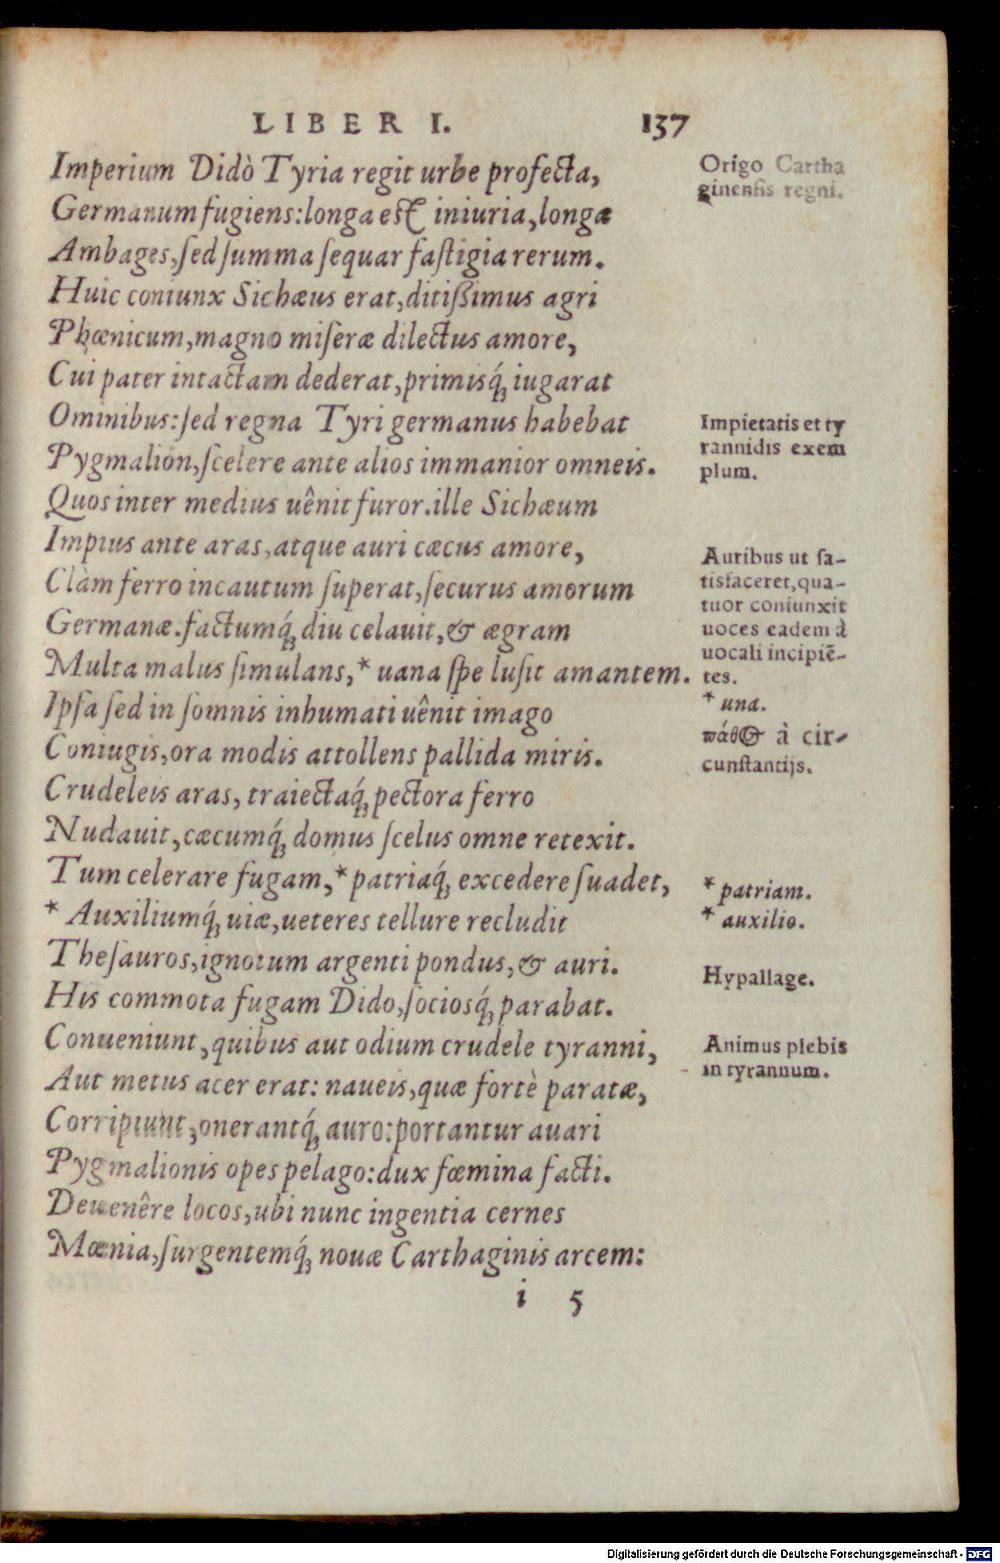 LIBER I. 137
Imperium Didò Tyria regit urbe profecta,
Germanum fugiens: longa est iniuria, longæ
Ambages, sed summa sequar fastigia rerum.
Huic coniunx Sichæus erat, ditißimus agri
Phœnicum, magno miseræ dilectus amore,
Cui pater intactam dederat, primisq́; iugarat
Ominibus: sed regna Tyri germanus habebat
Pygmalion, scelere ante alios immanior omneis.
Quos inter medius uênit furor. ille Sichæum
Impius ante aras, atque auri cæcus amore,
Clàm ferro incautum superat, securus amorum
Germanæ. factumq́; diu celauit, & ægram
Multa malus simulans, * uana spe lusit amantem.
Ipsa sed in somnis inhumati uênit imago
Coniugis, ora modis attollens pallida miris.
Crudeleis aras, traiectaq́; pectora ferro
Nudauit, cæcumq́; domus scelus omne retexit.
Tum celerare fugam, * patriaq́; excedere suadet,
* Auxiliumq́; uiæ, ueteres tellure recludit
Thesauros, ignotum argenti pondus, & auri.
His commota fugam Dido, sociosq́; parabat.
Conueniunt, quibus aut odium crudele tyranni,
Aut metus acer erat: naueis, quæ fortè paratæ,
Corripiunt, onerantq́; auro: portantur auari
Pygmalionis opes pelago: dux fœmina facti.
Deuenêre locos, ubi nunc ingentia cernes
Mœnia, surgentemq́; nouæ Carthaginis arcem:
i 5
Origo Cartha
ginensis regni.
Impietatis et ty
rannidis exem
plum.
Auribus ut sa-
tisfaceret, qua-
tuor coniunxit
uoces eadem à
uocali incipiē-
tes.
* una.
πάθος à cir-
cunstantijs.
* patriam.
* auxilio.
Hypallage.
Animus plebis
in tyrannum.
Digitalisierung gefördert durch die Deutsche Forschungsgemeinschaft - DFG